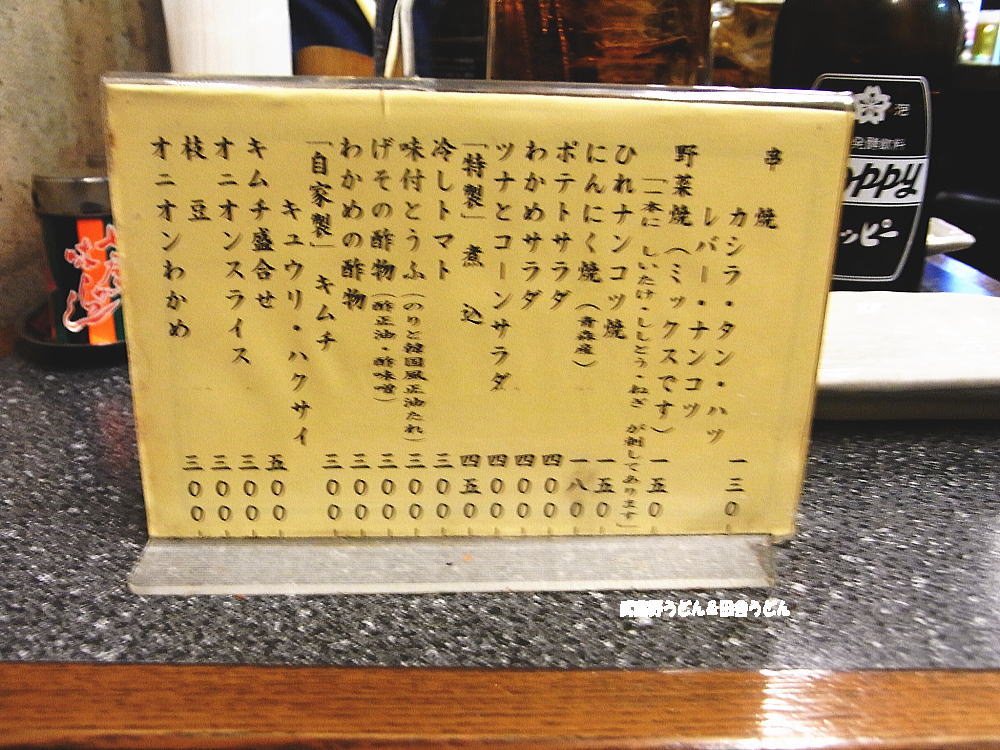 串焼
カシラ・タン・ハツ 一三〇
レバー・ナンコツ
野菜焼(ミックスです) 一五〇
「一本に しいたけ・ししとう・ねぎ が刺してあります」
ひれナンコツ焼 一五〇
にんにく焼(青森産) 一八〇
ポテトサラダ 四〇〇
わかめサラダ 四〇〇
ツナとコーンサラダ 四〇〇
「特製」煮込 四五〇
冷しトマト 三〇〇
味付とうふ(のりと韓国風正油たれ) 三〇〇
げその酢物(酢正油・酢味噌) 三〇〇
わかめの酢物 三〇〇
「自家製」キムチ 三〇〇
キュウリ・ハクサイ
キムチ盛合せ 五〇〇
オニオンスライス 三〇〇
枝豆 三〇〇
オニオンわかめ 三〇〇
泡
発酵飲料
oppy
ッピー
武蔵野うどん&田舎うどん